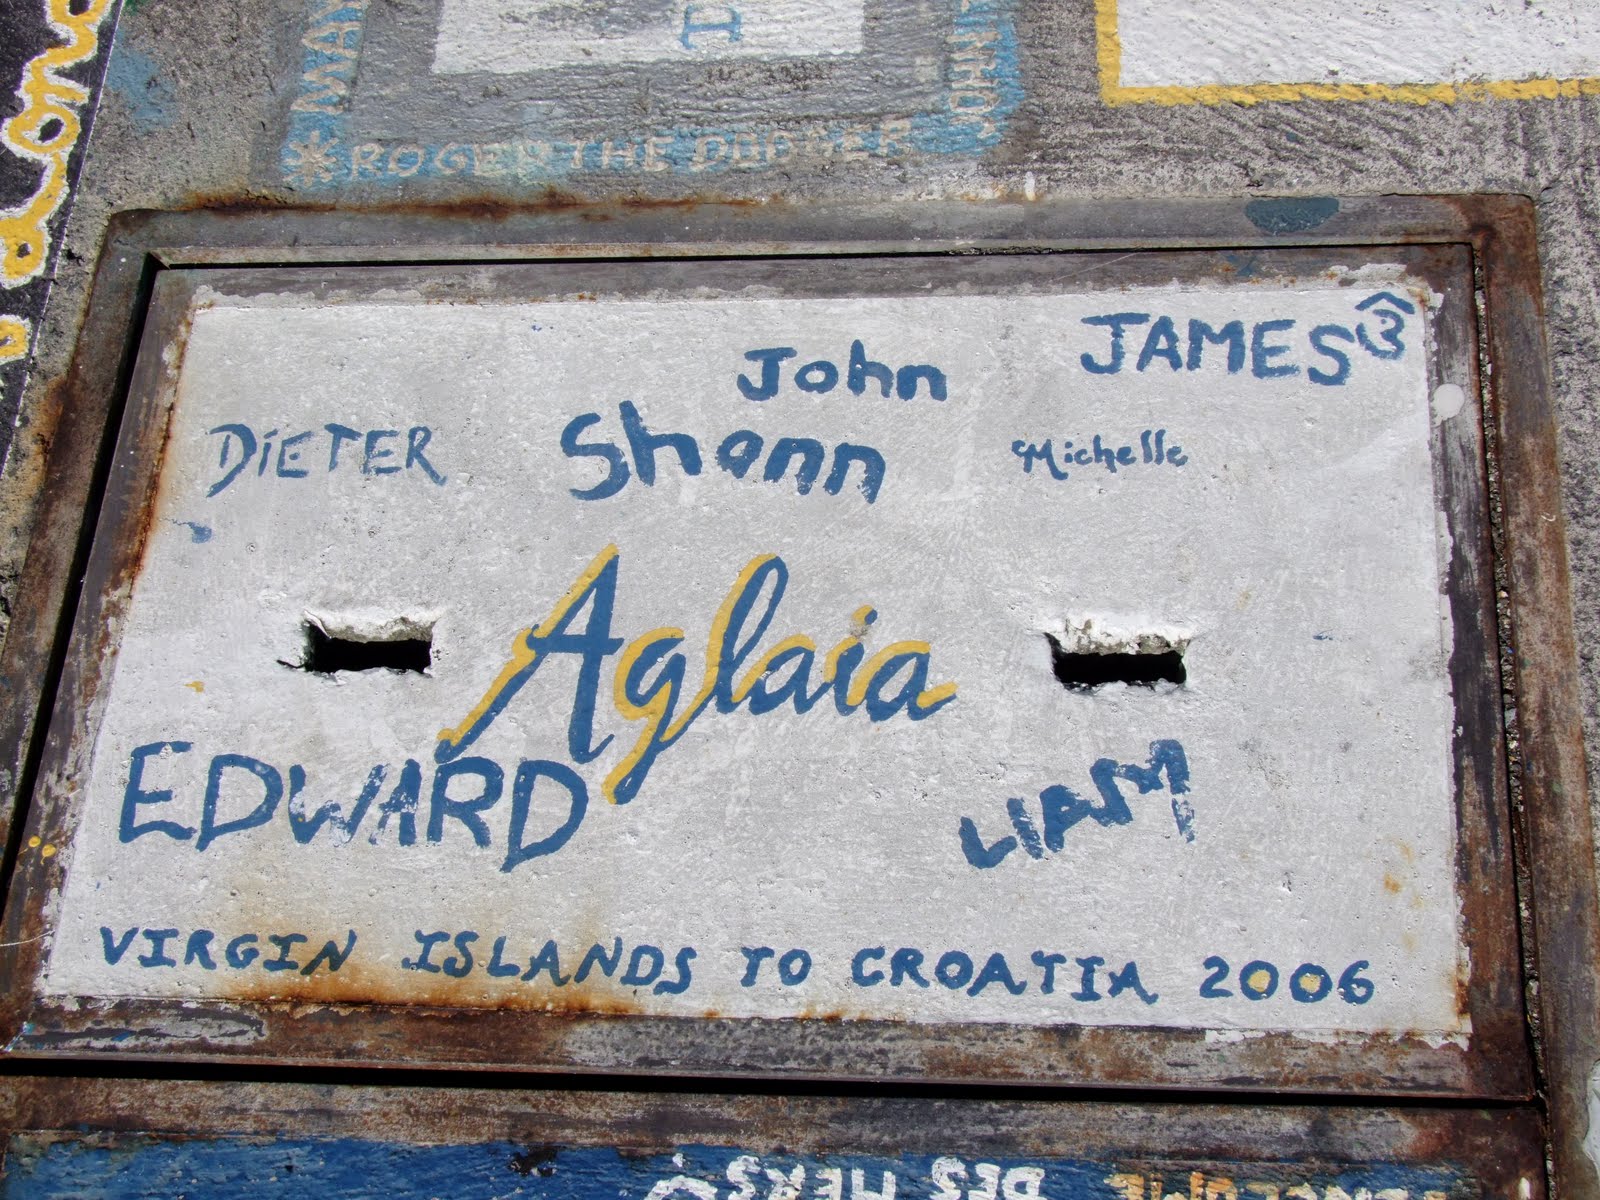 * ROGER THE DODGER
John
JAMES
DiETER
Shann
Michelle
Aglaia
EDWARD
LIAM
VIRGIN ISLANDS TO CROATIA 2006
DES MERS